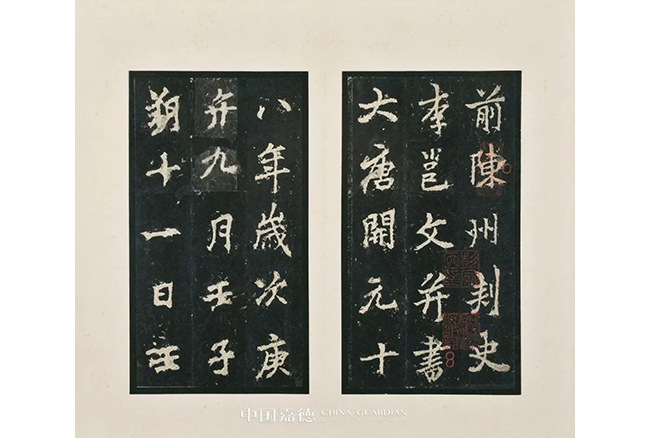 前陳州刺史
李邕文并書
大唐開元十
八年歲次庚
午九月壬子
朔十一日壬
中国嘉德 CHINA GUARDIAN